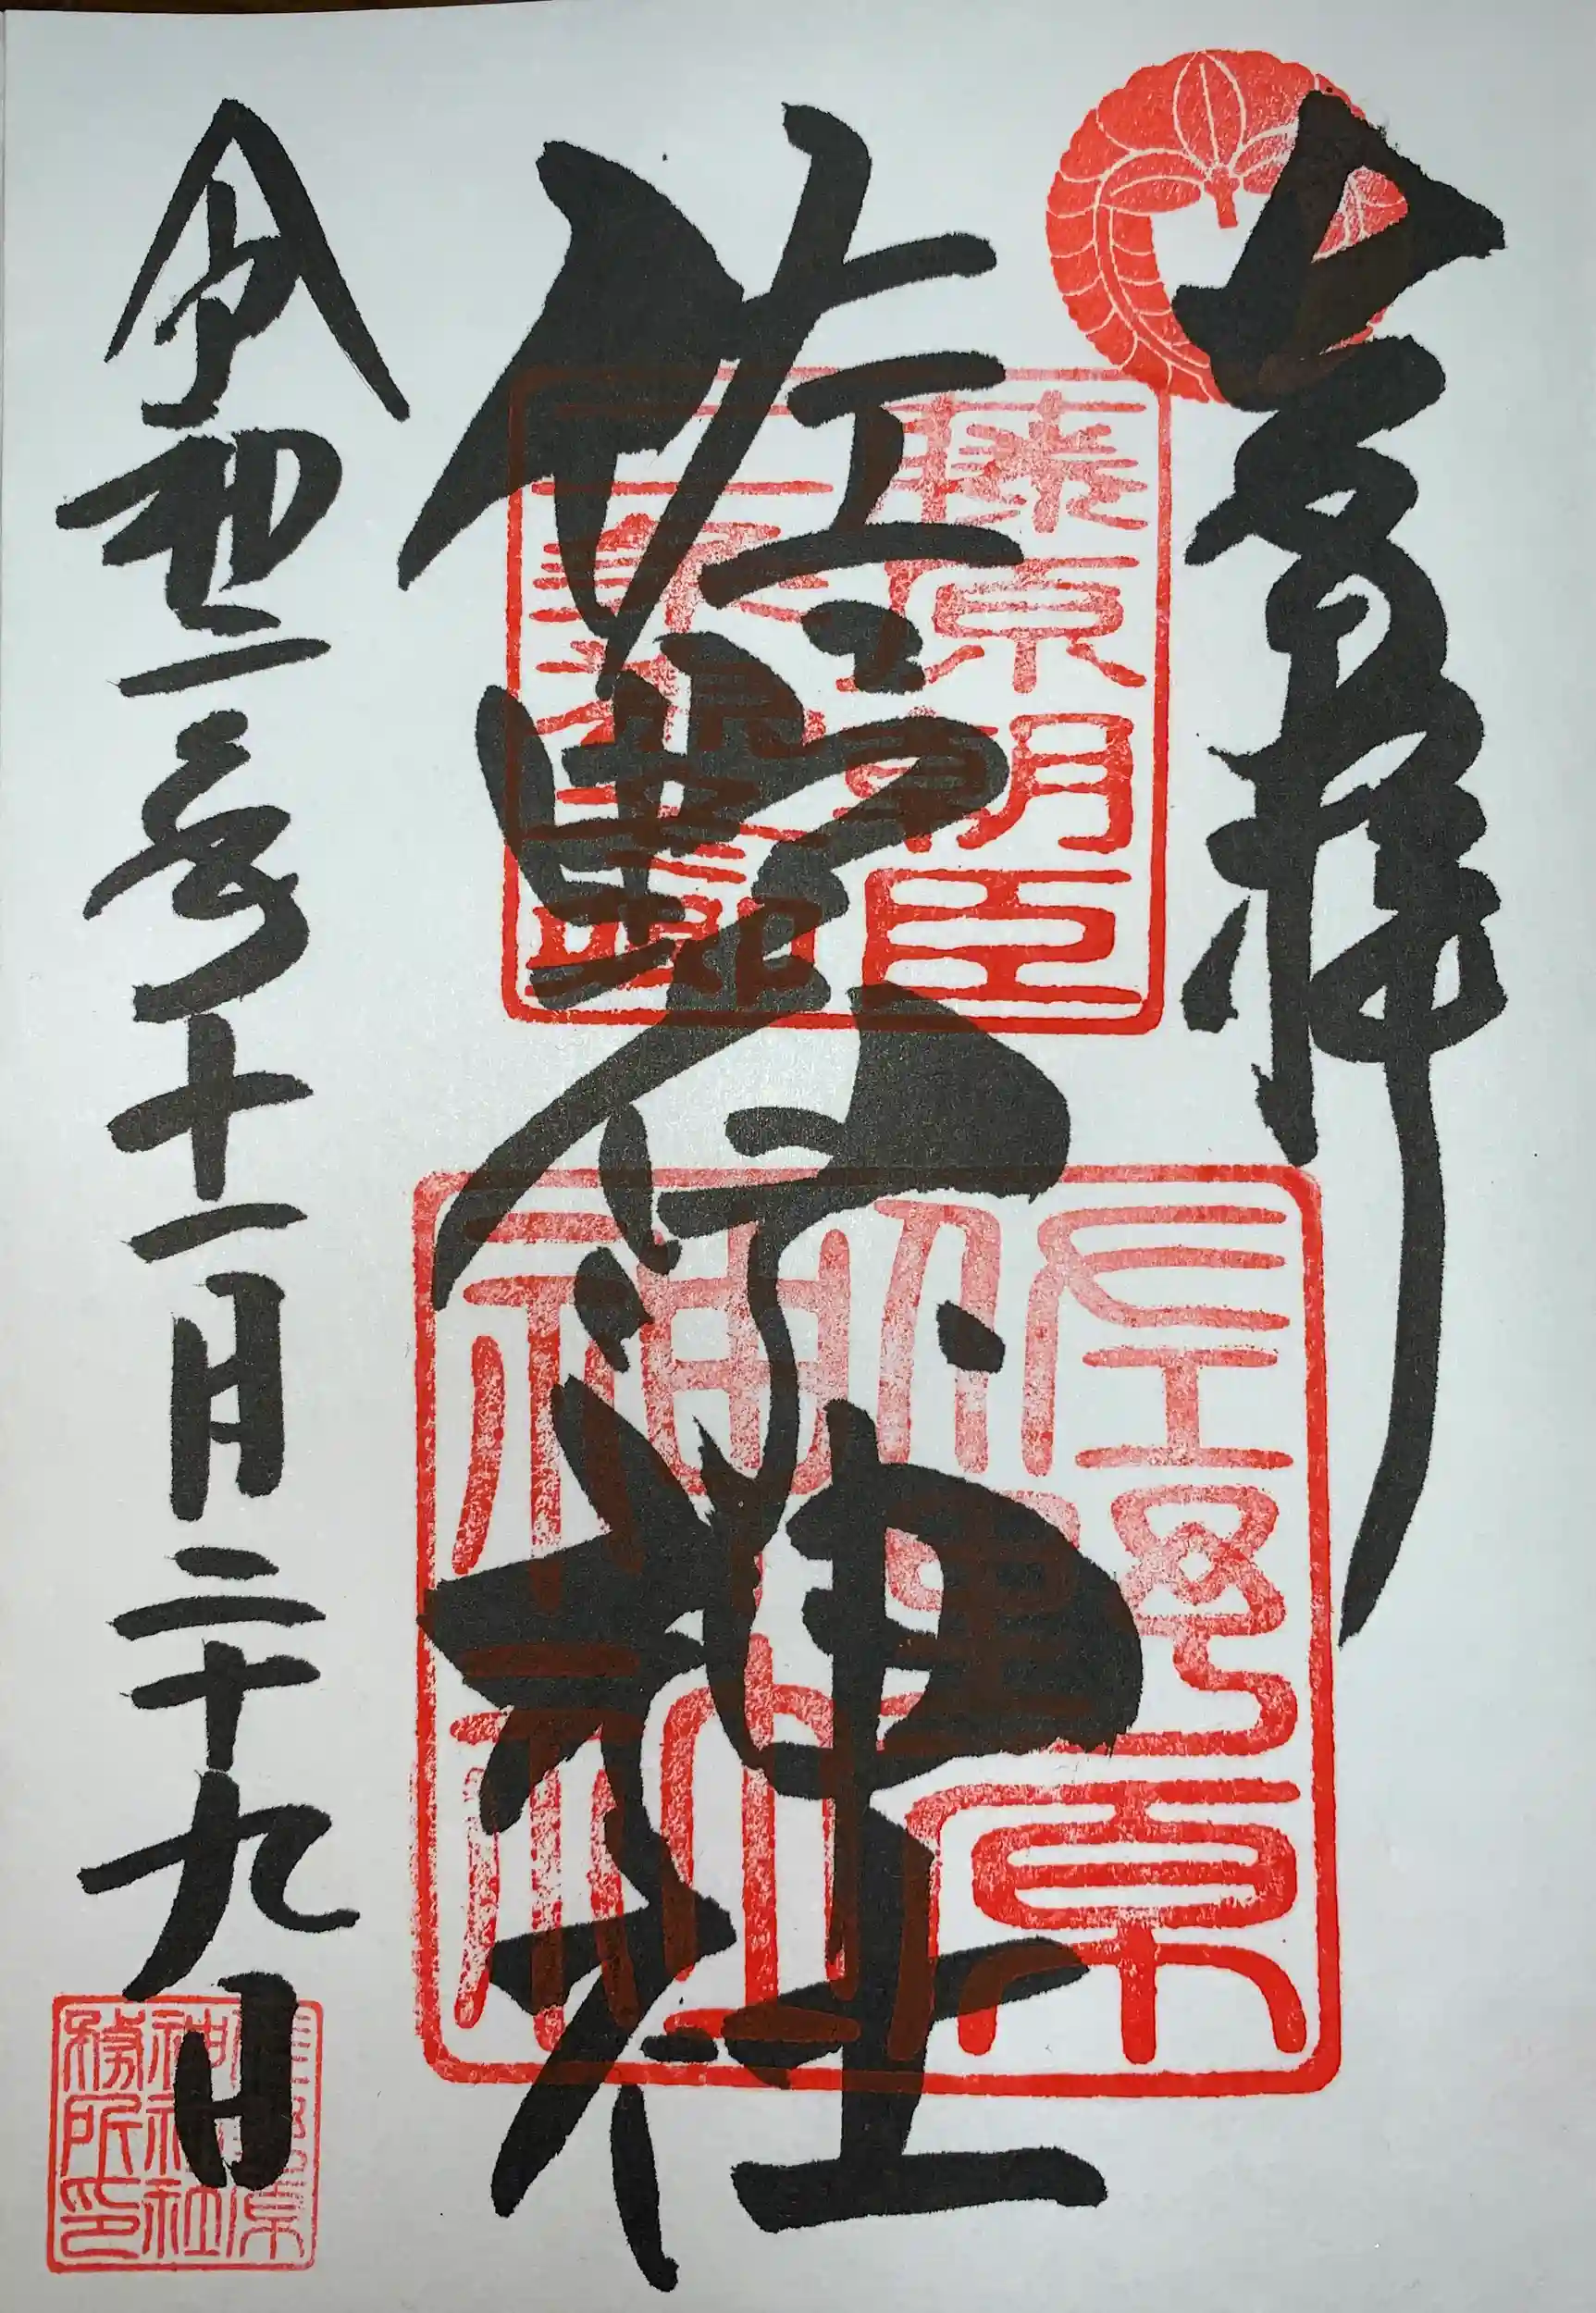 奉拝
佐野原神社
令和二年十一月二十九日
藤原朝臣
佐野原
神社
佐野原
神社社
務所印